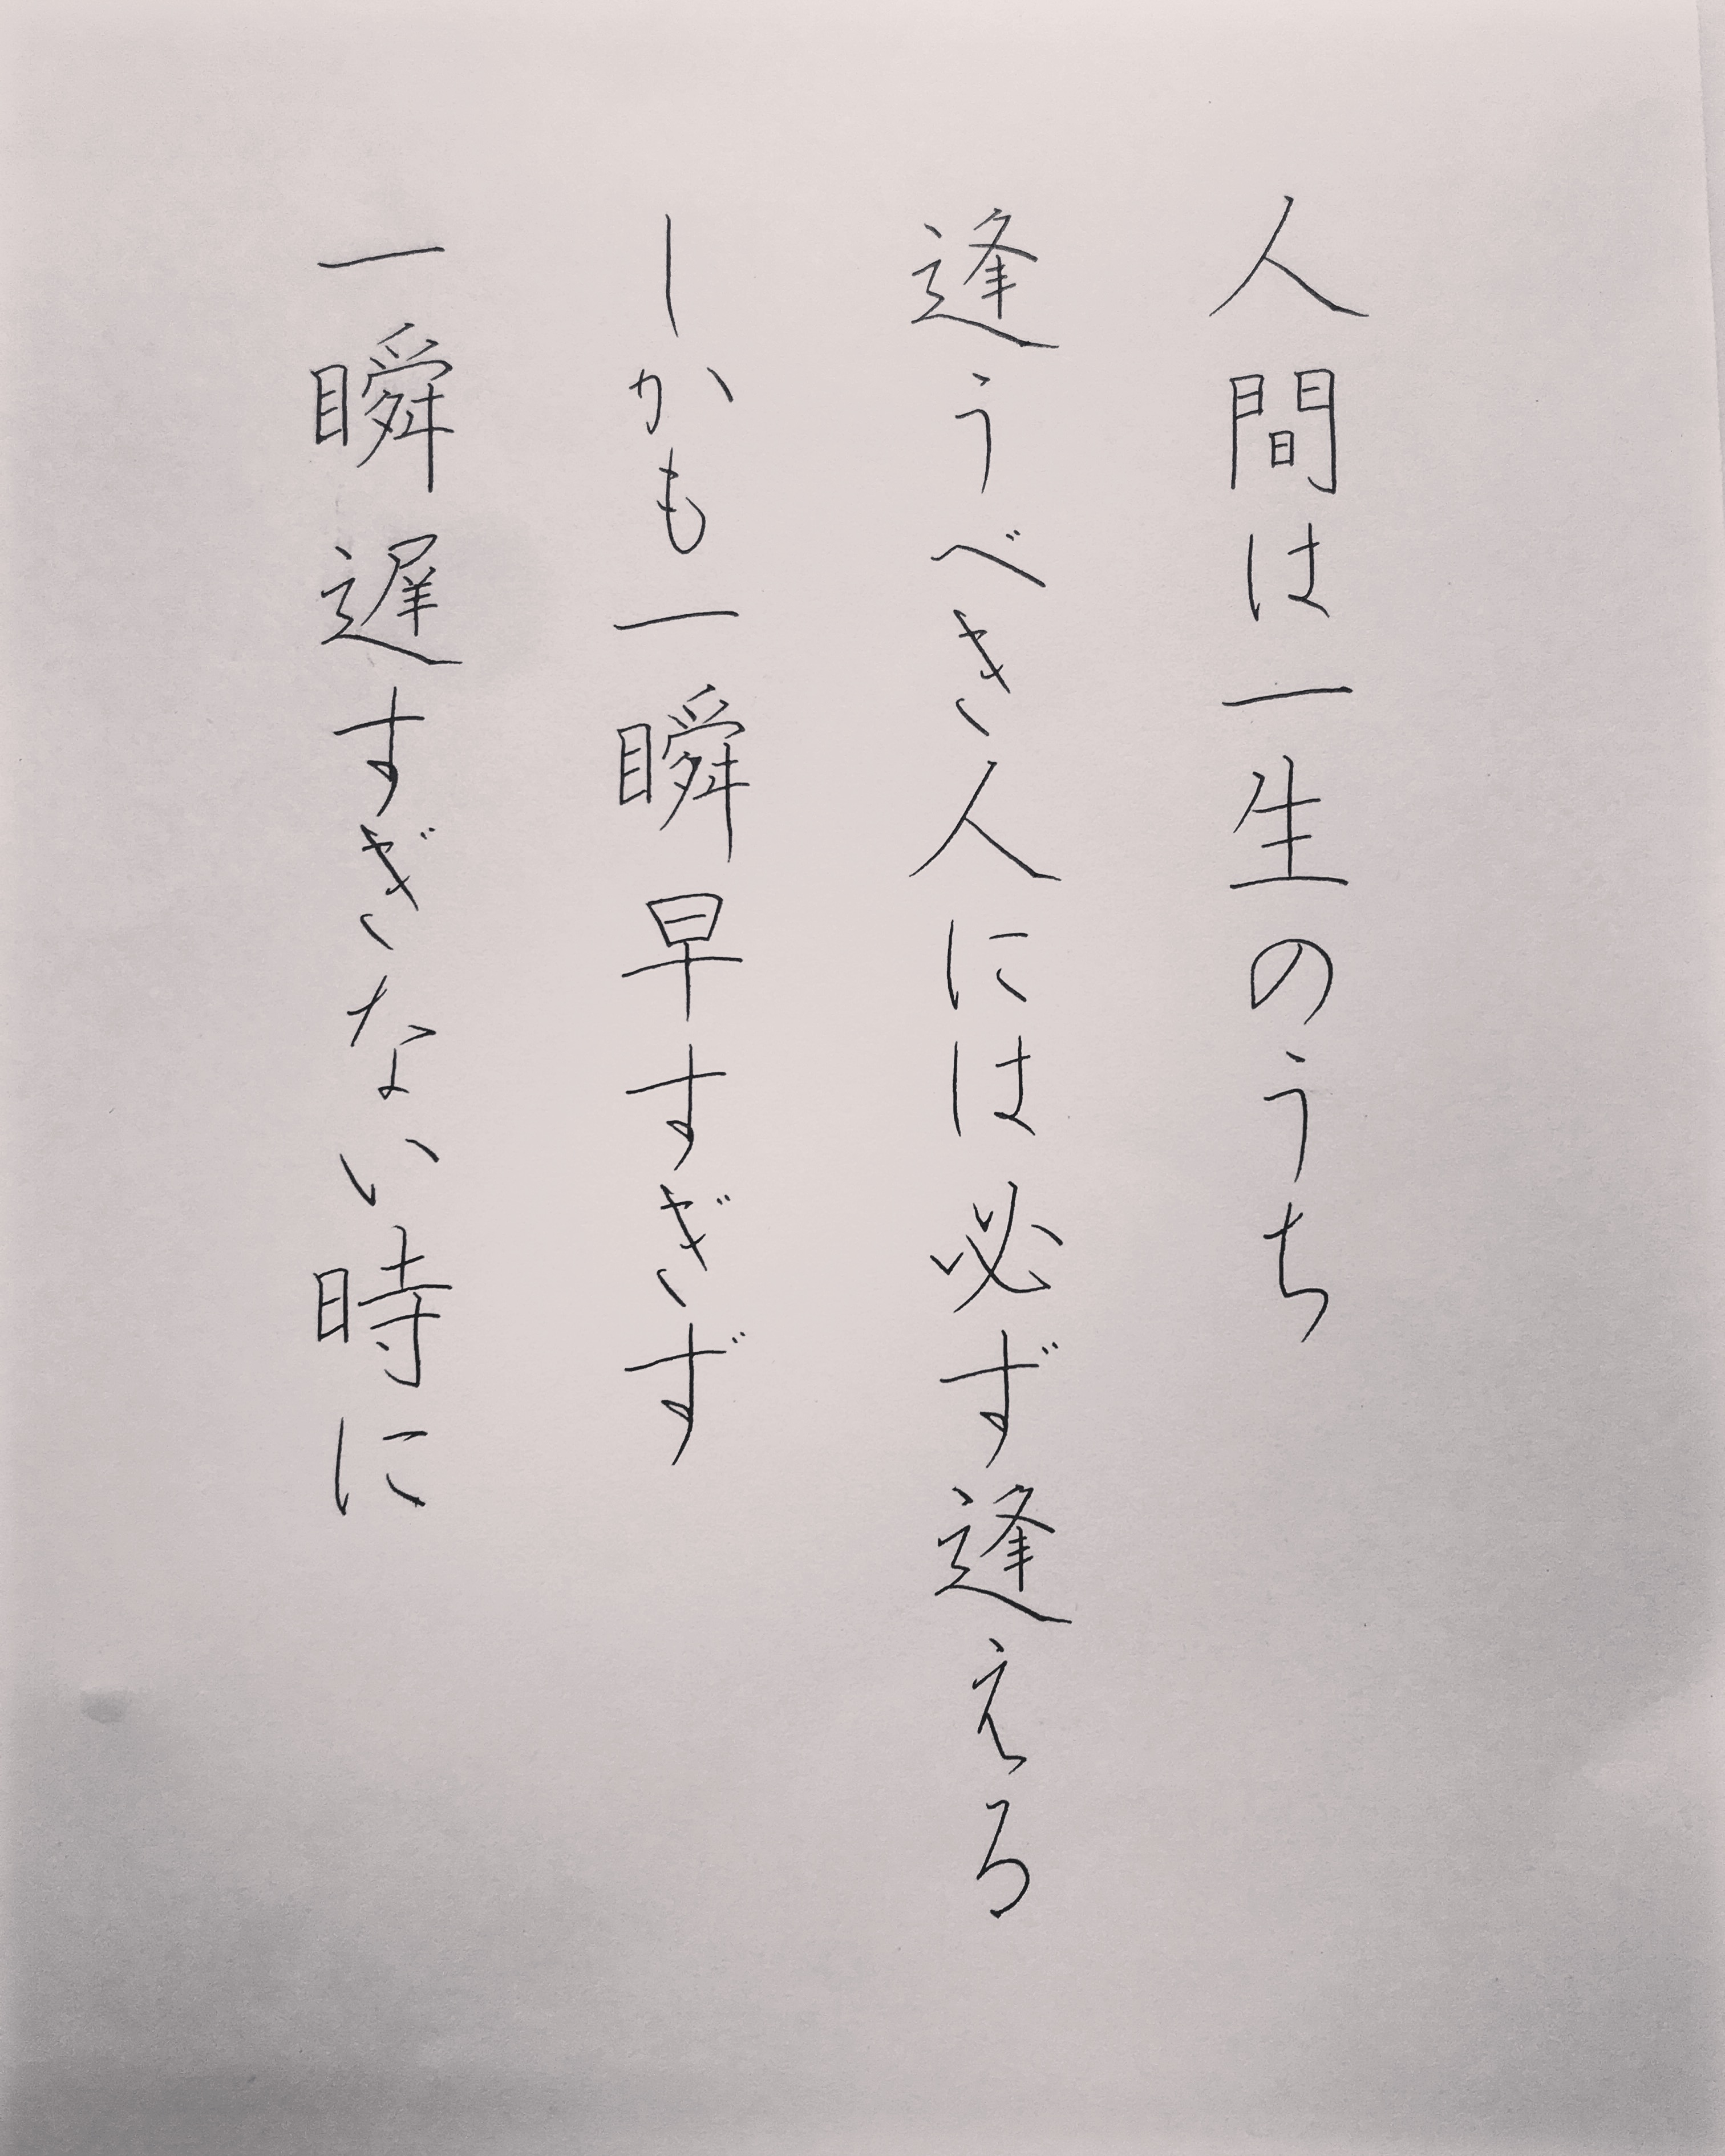 人間は一生のうち
逢うべき人には必ず逢える
しかも一瞬早すぎず
一瞬遅すぎない時に